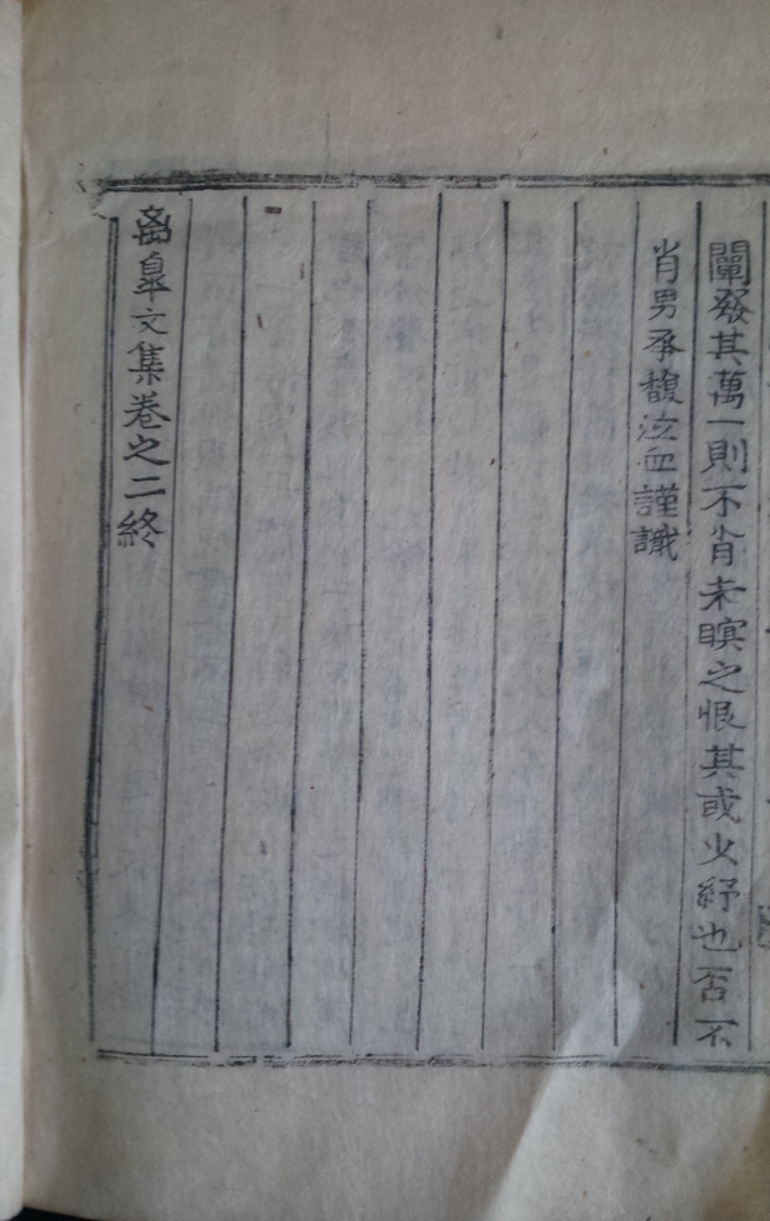 闡發其萬一則不肖未瞑之恨其或少紓也否不
肖男承馥泣血謹識
离皐文集卷之二終